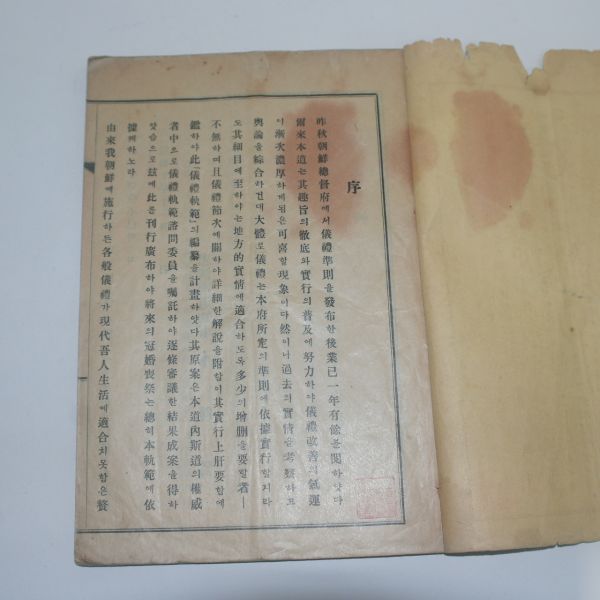 序
昨秋朝鮮總督府에서儀禮準則을發布한後業已一年有餘를閱하얏다
爾來本道는其趣旨의徹底와實行의普及에努力하야儀禮改善의氣運
이漸次濃厚하게됨은可喜할現象이다然이나過去의實情을考察하고
輿論을綜合하건대大體로儀禮는本府所定의準則에依據實行할지라
도其細目에至하야는地方的實情에適合하도록多少의增刪을要할者一
不無하며且儀禮節次에關하야詳細한解說을附함이其實行上肝要함에
鑑하야此「儀禮軌範」의編纂을計畫하얏다其原案은本道內斯道의權威
者中으로儀禮軌範諮問委員을囑託하야逐條審議한結果成案을得하
얏슴으로玆에此를刊行廣布하야將來의冠婚喪祭는總히本軌範에依
據케하노라
由來我朝鮮에施行하든各般儀禮가現代吾人生活에適合치못함은贅